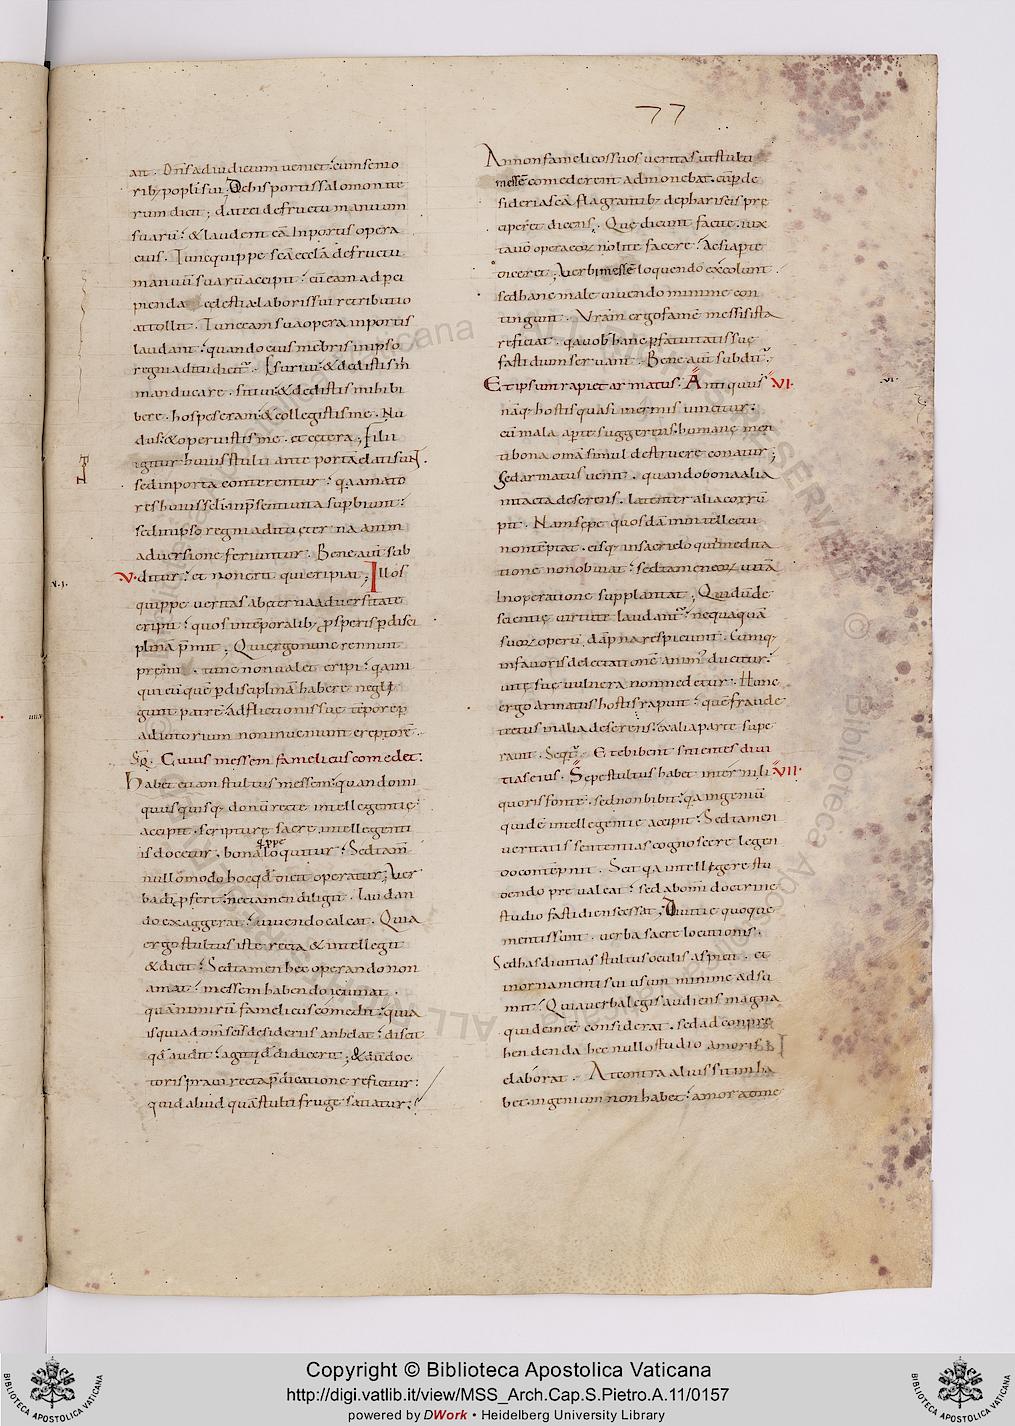 77
ait. Dn̄s ad iudicium ueniet: cum senio
rib; populi sui; De his portis salomon ite
rum dicit; date ei de fructu manuum
suarū: & laudent eā in portis opera
eius. Tunc quippe scā eccłā de fructu
manuū suarū accipit: cū eam ad p̄ci
pienda cęlestia laboris sui retributio
attollit. Tunc eam sua opera in portis
laudant: quando eius mēbris in ipso
regni aditu dicit̄. Esuriui & dedistis m̄
manducare. sitiui & dedistis mihi bi
bere. hospes eram & collegistis me. Nu
dus & operuistis me. et cetera; Filii
igitur huius stulti ante portā elati sun̄.
sed in porta conterentur: q̄a amato
res huius sc̄li in p̄senti uita sup̄biunt:
sed in ipso regni aditu ęterna anim
aduersione feriuntur. Bene aut̄ sub
V. ditur: et non erit qui eripiat; Illos
quippe ueritas ab ęterna aduersitate
eripit: quos in tēporalib; p̄speris p̄ disci
plinā p̄mit; Qui ergo nunc rennuit
p̄mi. tunc non ualet eripi: q̄a ini
qui cū quē p̄ disciplinā habere negl̄i
gunt patrē: adflictionis suę tēpore p̄
adiutorium non inueniunt ereptorē.
Sq̄. Cuius messem famelicus comedet:
Habet etiam stultus messem: quando ini
quus quisq; donū recte intellegentię
accipit. scripturę sacre intellegenti
q̄ppe
is docetur. bona loquitur: Sed tam̄
nullomodo hoc qd̄ dicit operatur; Uer
ba dī p̄fert: nec tamen diligit. laudan
do exaggerat: uiuendo calcat. Quia
ergo stultus iste recta & intellegit
& dicit: Sed tamen hec operando non
amat: messem habendo ieiunat.
quā nimirū famelicus comedit: quia
is qui ad dn̄m scīs desideriis anhelat: discit
qd̄ audit: agit qd̄ didicerit; & dū doc
toris praui recta p̄dicatione reficitur:
quid aliud quā stulti fruge satiatur;
An non famelicos suos ueritas ut stulti
messē comederent admonebat. cū p̄ de
sideria scā flagrantib; de phariseis prę
ciperet dicens. Quę dicunt facite. iux
ta uō opera eor̄ nolite facere: Ac si aperte
diceret; Uerbi messē loquendo excolunt.
sed hanc male uiuendo minime con
tingunt. Ur̄am ergo famē messis ista
reficiat. q̄a uob̄ hanc p̄ fatuitatis suę
fastidium seruant. Bene aut̄ subdit̄.
Et ipsum rapiet armatus. Antiquus VI.
nāq; hostis quasi inermis uincitur:
cū mala ap̄te suggerens. humanę men
ti bona om̄ia simul destruere conatur;
Sed armatus uenit. quando bona alia
intacta deserens. latenter alia corrū
pit. Nam sepe quosdā in intellectu
non tēptat. eisq; in sacri eloquii medita
tione non obuiat: sed tamen eor̄ uitā
in operatione supplantat; Qui dū de
scientię uirtute laudant̄. nequaquā
suor̄ operū dāpna respiciunt. Cumq;
in fauoris delectationē anim̄ ducitur:
uitę suę uulnera non medetur. Hunc
ergo armatus hostis rapuit: quē fraude
tectus in alia deserens. ex alia parte supe
rauit. Seqt̄. Et bibent sitientes diui
tias eius. Sepe stultus habet interni li VII.
quoris fonte. sed non bibit: q̄a ingeniū
quidē intellegentię accipit: Sed tamen
ueritatis sententias cognoscere legen
do contēpnit. Scit q̄a intellegere stu
dendo preualeat: sed ab om̄i doctrine
studio fastidiens cessat. Diuitię quoque
mentis sunt. uerba sacre locutionis.
Sed has diuitias stultus oculis aspicit. et
in ornamenti sui usum minime adsu
mit: Quia uerba legis audiens magna
quidem eē considerat. sed ad conpre
hendenda hec nullo studio amoris
elaborat. At contra alius sitim ha
bet. ingenium non habet: amor ad me
Copyright © Biblioteca Apostolica Vaticana
http://digi.vatlib.it/view/MSS_Arch.Cap.S.Pietro.A.11/0157
powered by DWork • Heidelberg University Library